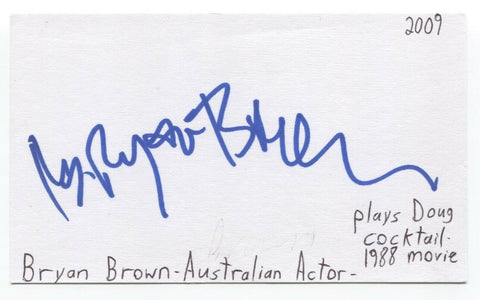 2009
Bryan Brown
plays Doug
cocktail-
1988 movie
Bryan Brown-Australian Actor-